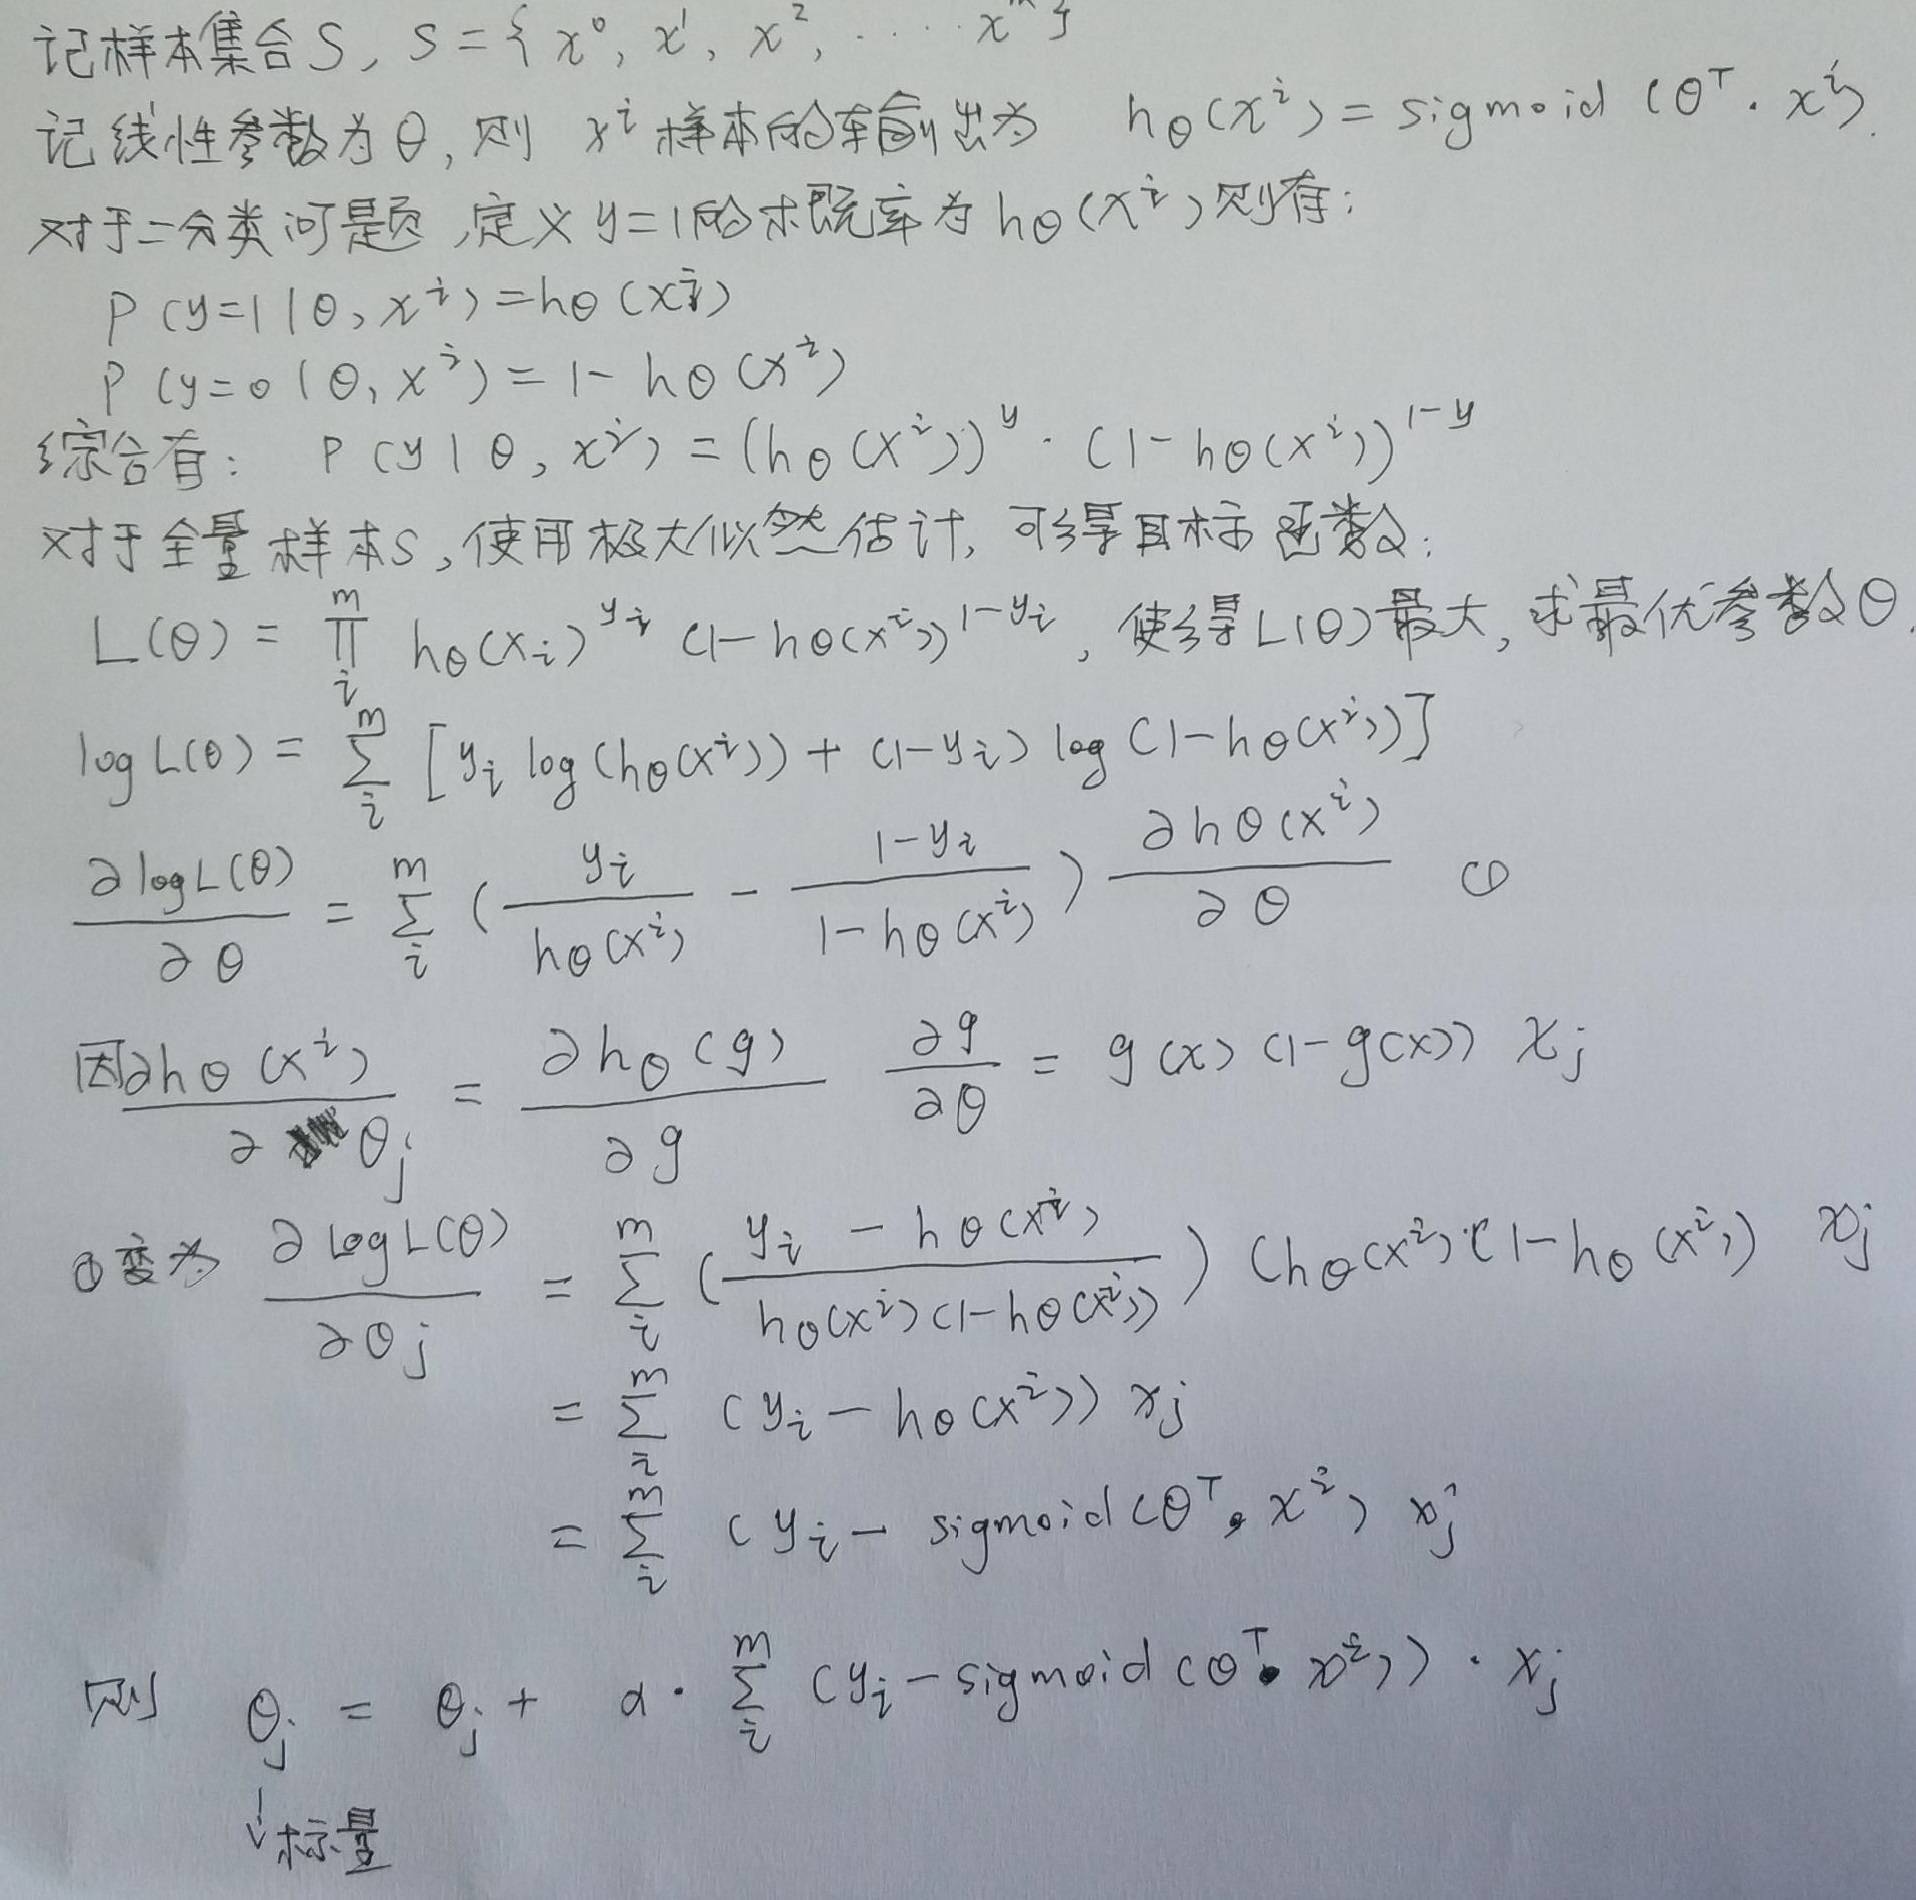 记样本集合S, S = { x⁰, x¹, x², ···· xᵐ }
记线性参数为θ, 则 xⁱ 样本的输出为 hθ(xⁱ) = sigmoid (θᵀ · xⁱ).
对于二分类问题, 定义 y=1的概率为 hθ(xⁱ) 则有:
P (y=1 | θ, xⁱ) = hθ (xⁱ)
P (y=0 | θ, xⁱ) = 1 - hθ (xⁱ)
综合有: P (y | θ, xⁱ) = (hθ (xⁱ))^y · (1 - hθ(xⁱ))^(1-y)
对于全量样本S, 使用极大似然估计, 可得目标函数:
L(θ) = ∏_i^m hθ(x_i)^(y_i) (1-hθ(xⁱ))^(1-y_i), 使得L(θ)最大, 求最优参数θ.
log L(θ) = ∑_i^m [y_i log(hθ(xⁱ)) + (1-y_i) log (1-hθ(xⁱ))]
∂logL(θ)/∂θ = ∑_i^m ( y_i/hθ(xⁱ) - (1-y_i)/(1-hθ(xⁱ)) ) ∂hθ(xⁱ)/∂θ ①
因 ∂hθ(xⁱ)/∂θ_j = ∂hθ(g)/∂g ∂g/∂θ = g(x) (1-g(x)) x_j
①变为 ∂logL(θ)/∂θ_j = ∑_i^m ( (y_i - hθ(xⁱ))/(hθ(xⁱ)(1-hθ(xⁱ))) ) (hθ(xⁱ)·(1-hθ(xⁱ)) x_j
= ∑_i^m (y_i - hθ(xⁱ)) x_j
= ∑_i^m (y_i - sigmoid(θᵀ · xⁱ) x_j
则 θ_j = θ_j + α · ∑_i^m (y_i - sigmoid(θᵀ · xⁱ)) · x_j
↓标量